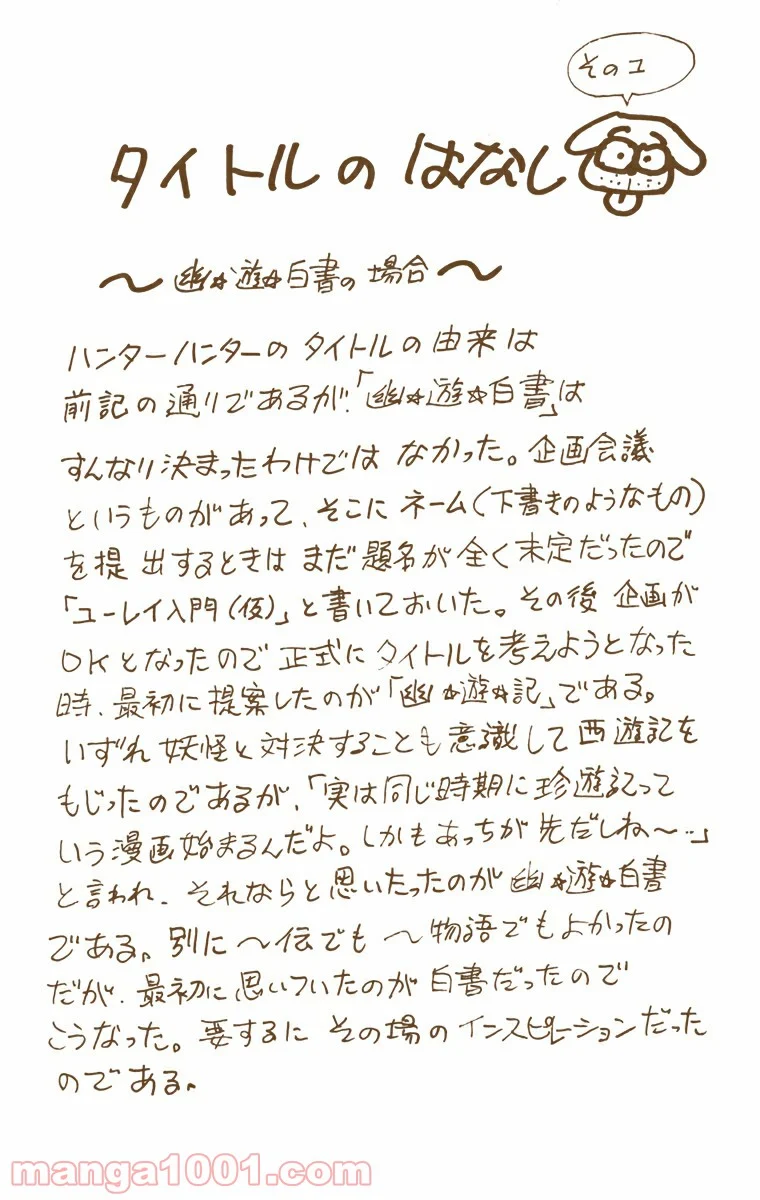 その2
タイトルの はなし
～幽☆遊☆白書の場合～
ハンターハンターの タイトルの由来は
前記の通りであるが、「幽☆遊☆白書」は
すんなり決まったわけでは なかった。企画会議
というものがあって、そこに ネーム(下書きのようなもの)
を提出するときは まだ題名が全く未定だったので
「ユーレイ入門(仮)」と書いておいた。その後 企画が
OKとなったので正式にタイトルを考えようとなった
時、最初に提案したのが「幽☆遊☆記」である。
いずれ妖怪と対決することも意識して西遊記を
もじったのであるが、「実は同じ時期に珍遊記って
いう漫画始まるんだよ。しかもあっちが先だしね〜…」
と言われ、それならと思いたったのが幽☆遊☆白書
である。別に〜伝でも 〜物語でもよかったの
だが、最初に思いついたのが白書だったので
こうなった。要するに その場のインスピレーションだった
のである。
manga1001.com